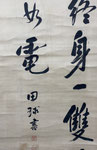 終身一雙
如電
田球書